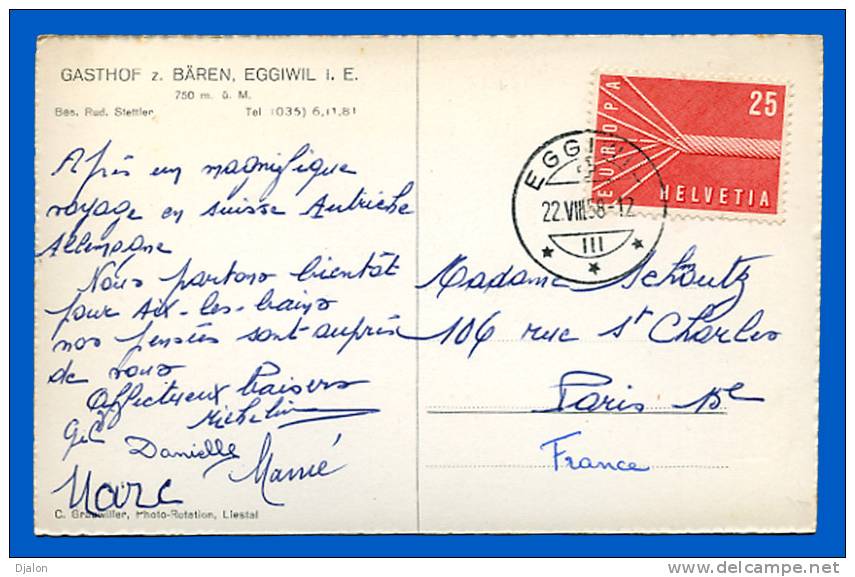 GASTHOF z. BÄREN, EGGIWIL i. E.
750 m. ü. M.
Bes. Rud. Stettler Tel (035) 6.11.81
Après un magnifique
voyage en suisse Autriche
Allemagne
Nous partons bientôt
pour Aix-les-bains
nos pensées sont auprès
de vous
Affectueux baisers
Micheline
Danielle
Mamé
Marc
C. Grauwiller, Photo-Rotation, Liestal
25
EUROPA
HELVETIA
EGGIWIL
22.VIII.58-12
III
Madame Schoutz
106 rue St Charles
Paris 15e
France
Djalon
delcampe.net